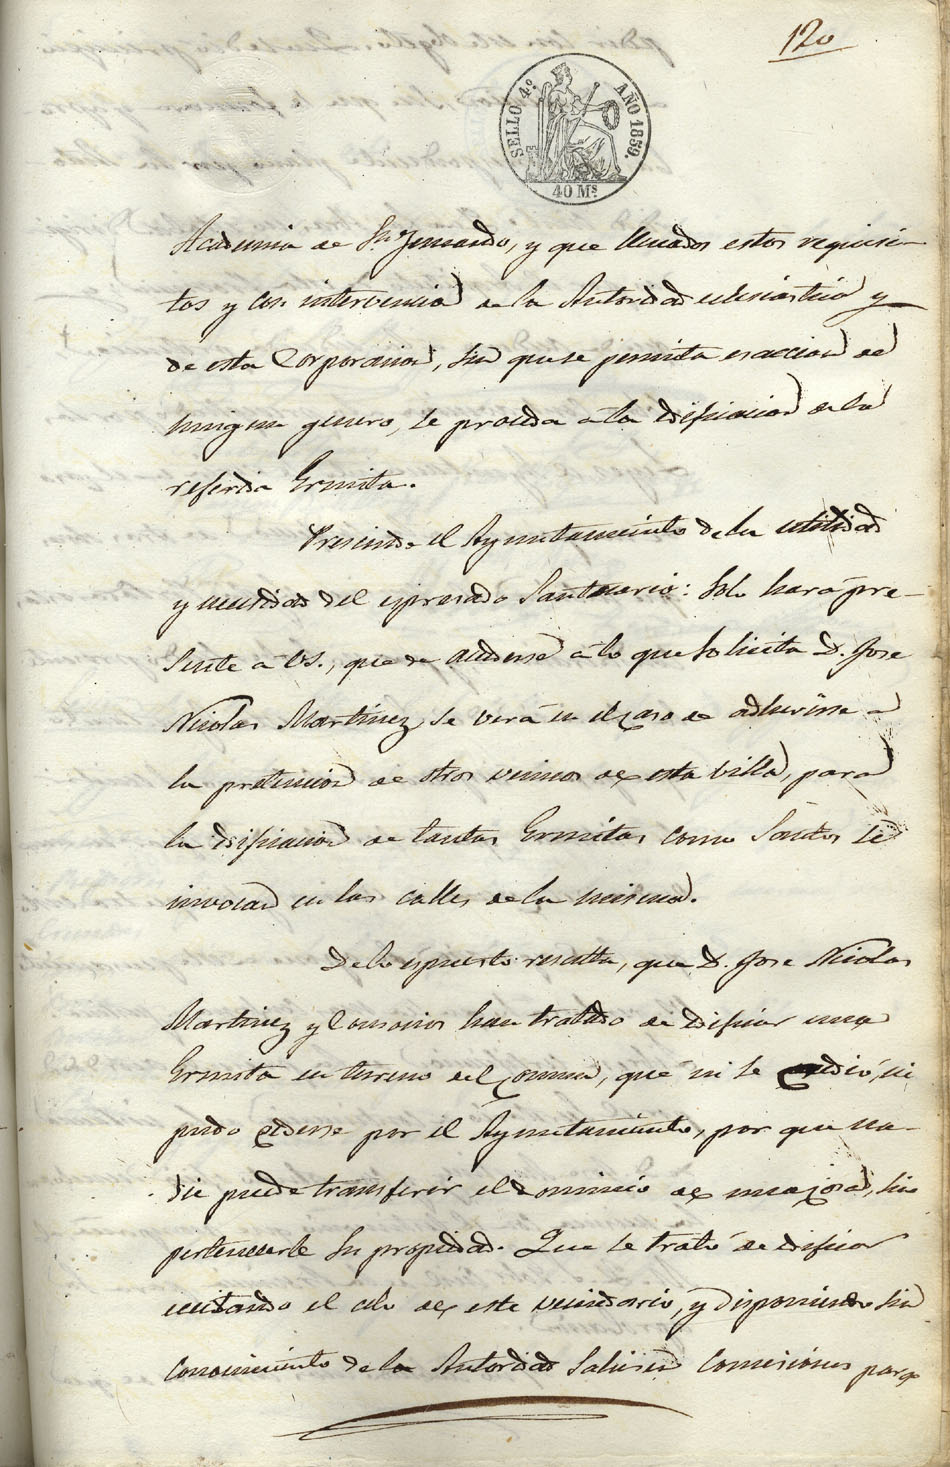 120
SELLO 4º AÑO 1859.
40 Ms.
Academia de Sn. Fernando, y que llenados estos requisi-
tos y con intervencion de la Autoridad eclesiastica y
de esta Corporacion, sin que se permita esaccion de
ningun genero, se proceda á la edificacion de la
referida Ermita.
Prescinde el Ayuntamiento de la utilidad
y necesidad del espresado Santuario: solo hará pre-
sente á VS., que de accederse á lo que solicita D. Jose
Nicolas Martinez, se verá en el caso de adherirse á
la pretencion de otros vecinos de esta villa, para
la edificacion de tantas Ermitas como Santos se
invocan en las calles de la misma.
De lo espuesto resulta, que D. Jose Nicolas
Martinez y Consocios han tratado de edificar una
Ermita en terreno del comun, que ni se cedió, ni
pudo cederse por el Ayuntamiento, por que na-
die puede transferir el dominio de una cosa, sin
pertenecerle su propiedad. Que se trató de edificar
escitando el celo de este vecindario, y disponiendo sin
conocimiento de la Autoridad saliesen Comisiones para